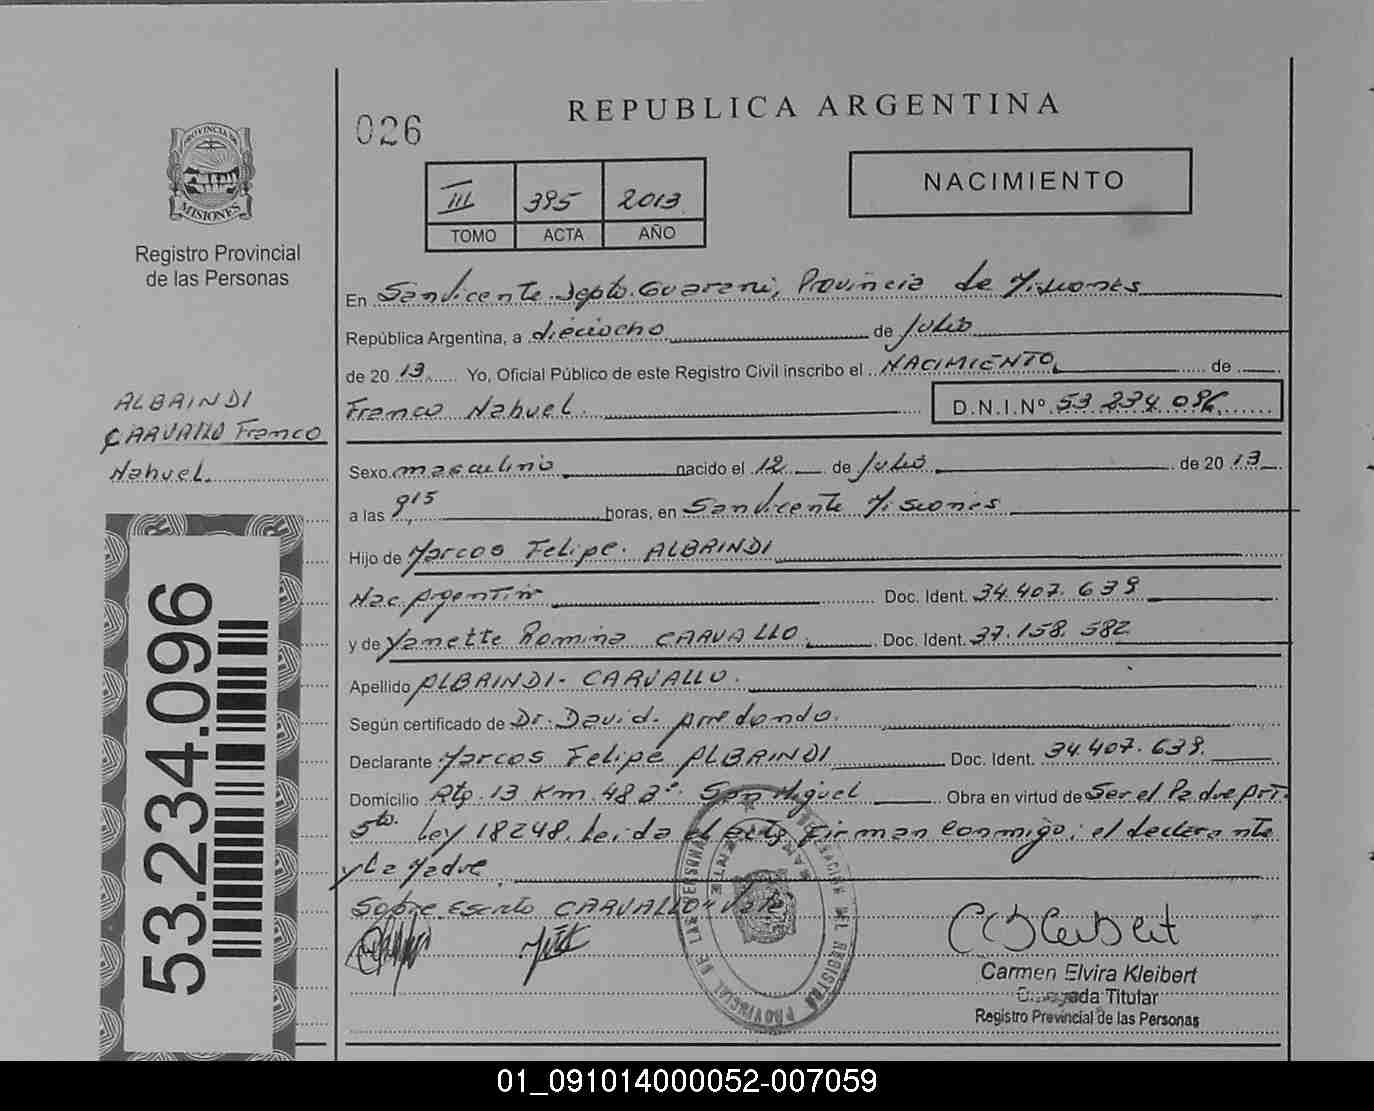 REPUBLICA ARGENTINA
026
PROVINCIA DE
MISIONES
Registro Provincial
de las Personas
III 395 2013
TOMO ACTA AÑO
NACIMIENTO
En San Vicente. Depto. Guarani, Provincia de Misiones
República Argentina, a dieciocho de Julio
de 20 13 Yo, Oficial Público de este Registro Civil inscribo el NACIMIENTO de
Franco Nahuel D.N.I.Nº 53 234 096
ALBRINDI
CARVALLO Franco
Nahuel.
Sexo masculino nacido el 12 de Julio de 20 13
a las 9 15 horas, en San Vicente Misiones
Hijo de Marcos Felipe. ALBRINDI
Nac. Argentin Doc. Ident. 34.407.639
y de Yanette Romina CARVALLO. Doc. Ident. 37.158.582
Apellido ALBRINDI - CARVALLO.
Según certificado de Dr. David. Arredondo.
Declarante Marcos Felipe ALBRINDI Doc. Ident. 34.407.639.
Domicilio Rta. 13 Km. 48 San Miguel Obra en virtud de Ser el Padre Art.
5to. Ley 18248. Leida el acta firman conmigo: el declarante
y La Madre
Sobre escrito CARVALLO" Vale
53.234.096
REGISTRO PROVINCIAL DE LAS PERSONAS
Carmen Elvira Kleibert
Titular
Registro Provincial de las Personas
01_091014000052-007059